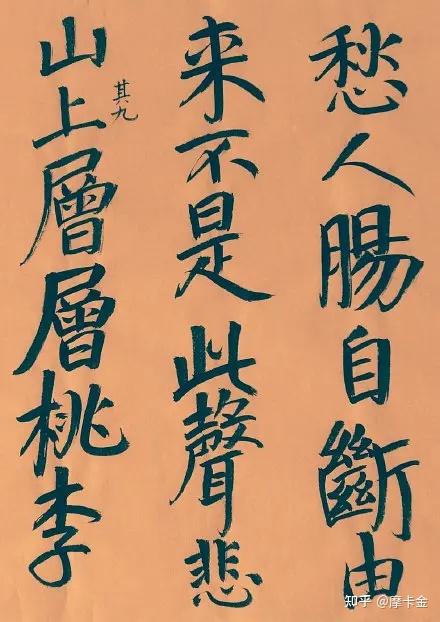 愁人腸自斷由
来不是此聲悲
其九
山上層層桃李
知乎 @摩卡金